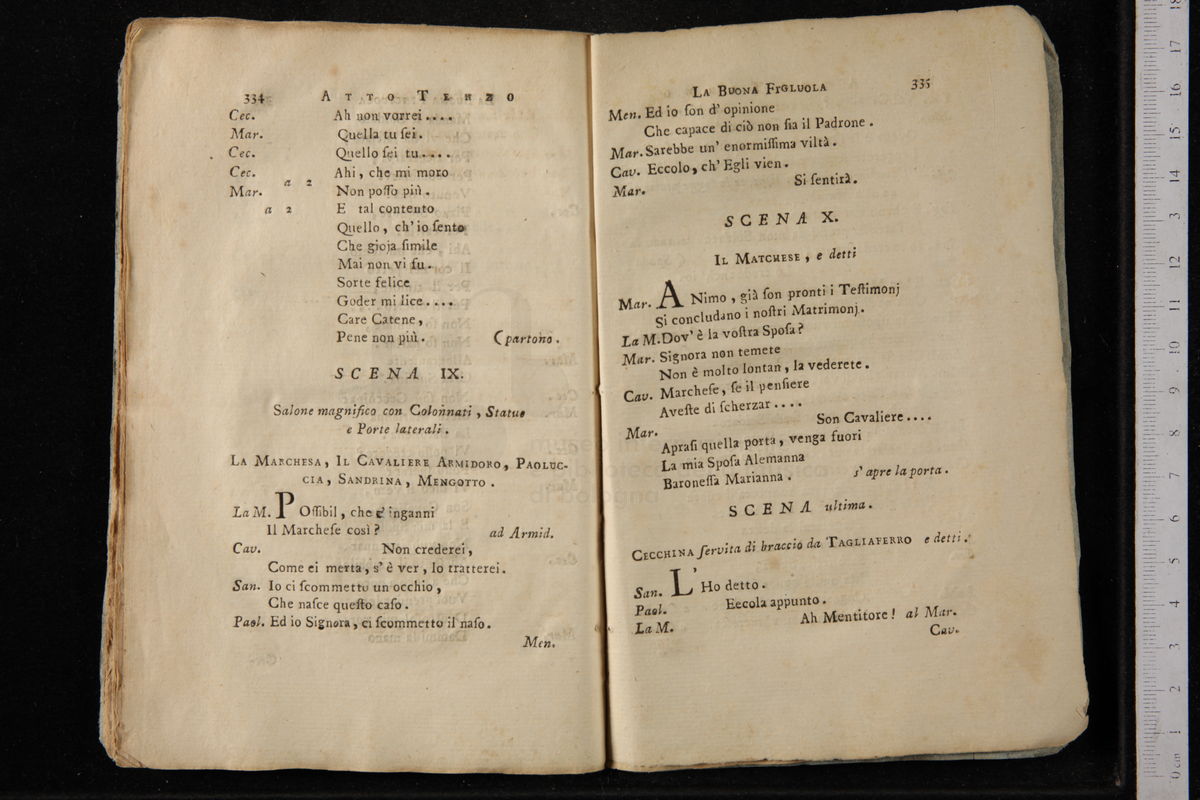 334 ATTO TERZO
Cec. Ah non vorrei....
Mar. Quella tu sei.
Cec. Quello sei tu....
Cec. Ahi, che mi moro
a 2
Mar. Non posso più.
a 2 E tal contento
Quello, ch'io sento
Che gioja simile
Mai non vi fu.
Sorte felice
Goder mi lice....
Care Catene,
Pene non più. (partono.
SCENA IX.
Salone magnifico con Colonnati, Statue
e Porte laterali.
LA MARCHESA, IL CAVALIERE ARMIDORO, PAOLUC-
CIA, SANDRINA, MENGOTTO.
La M. POssibil, che c'inganni
Il Marchese così? ad Armid.
Cav. Non crederei,
Come ei merta, s'è ver, lo tratterei.
San. Io ci scommetto un occhio,
Che nasce questo caso.
Paol. Ed io Signora, ci scommetto il naso.
Men.
LA BUONA FIGLUOLA 335
Men. Ed io son d'opinione
Che capace di ciò non sia il Padrone.
Mar. Sarebbe un'enormissima viltà.
Cav. Eccolo, ch'Egli vien.
Mar. Si sentirà.
SCENA X.
IL MATCHESE, e detti
Mar. ANimo, già son pronti i Testimonj
Si concludano i nostri Matrimonj.
La M. Dov'è la vostra Sposa?
Mar. Signora non temete
Non è molto lontan, la vederete.
Cav. Marchese, se il pensiere
Aveste di scherzar....
Mar. Son Cavaliere....
Aprasi quella porta, venga fuori
La mia Sposa Alemanna
Baronessa Marianna. s'apre la porta.
SCENA ultima.
CECCHINA servita di braccio da TAGLIAFERRO e detti.
San. L'Ho detto.
Paol. Eecola appunto.
La M. Ah Mentitore! al Mar.
Cav.